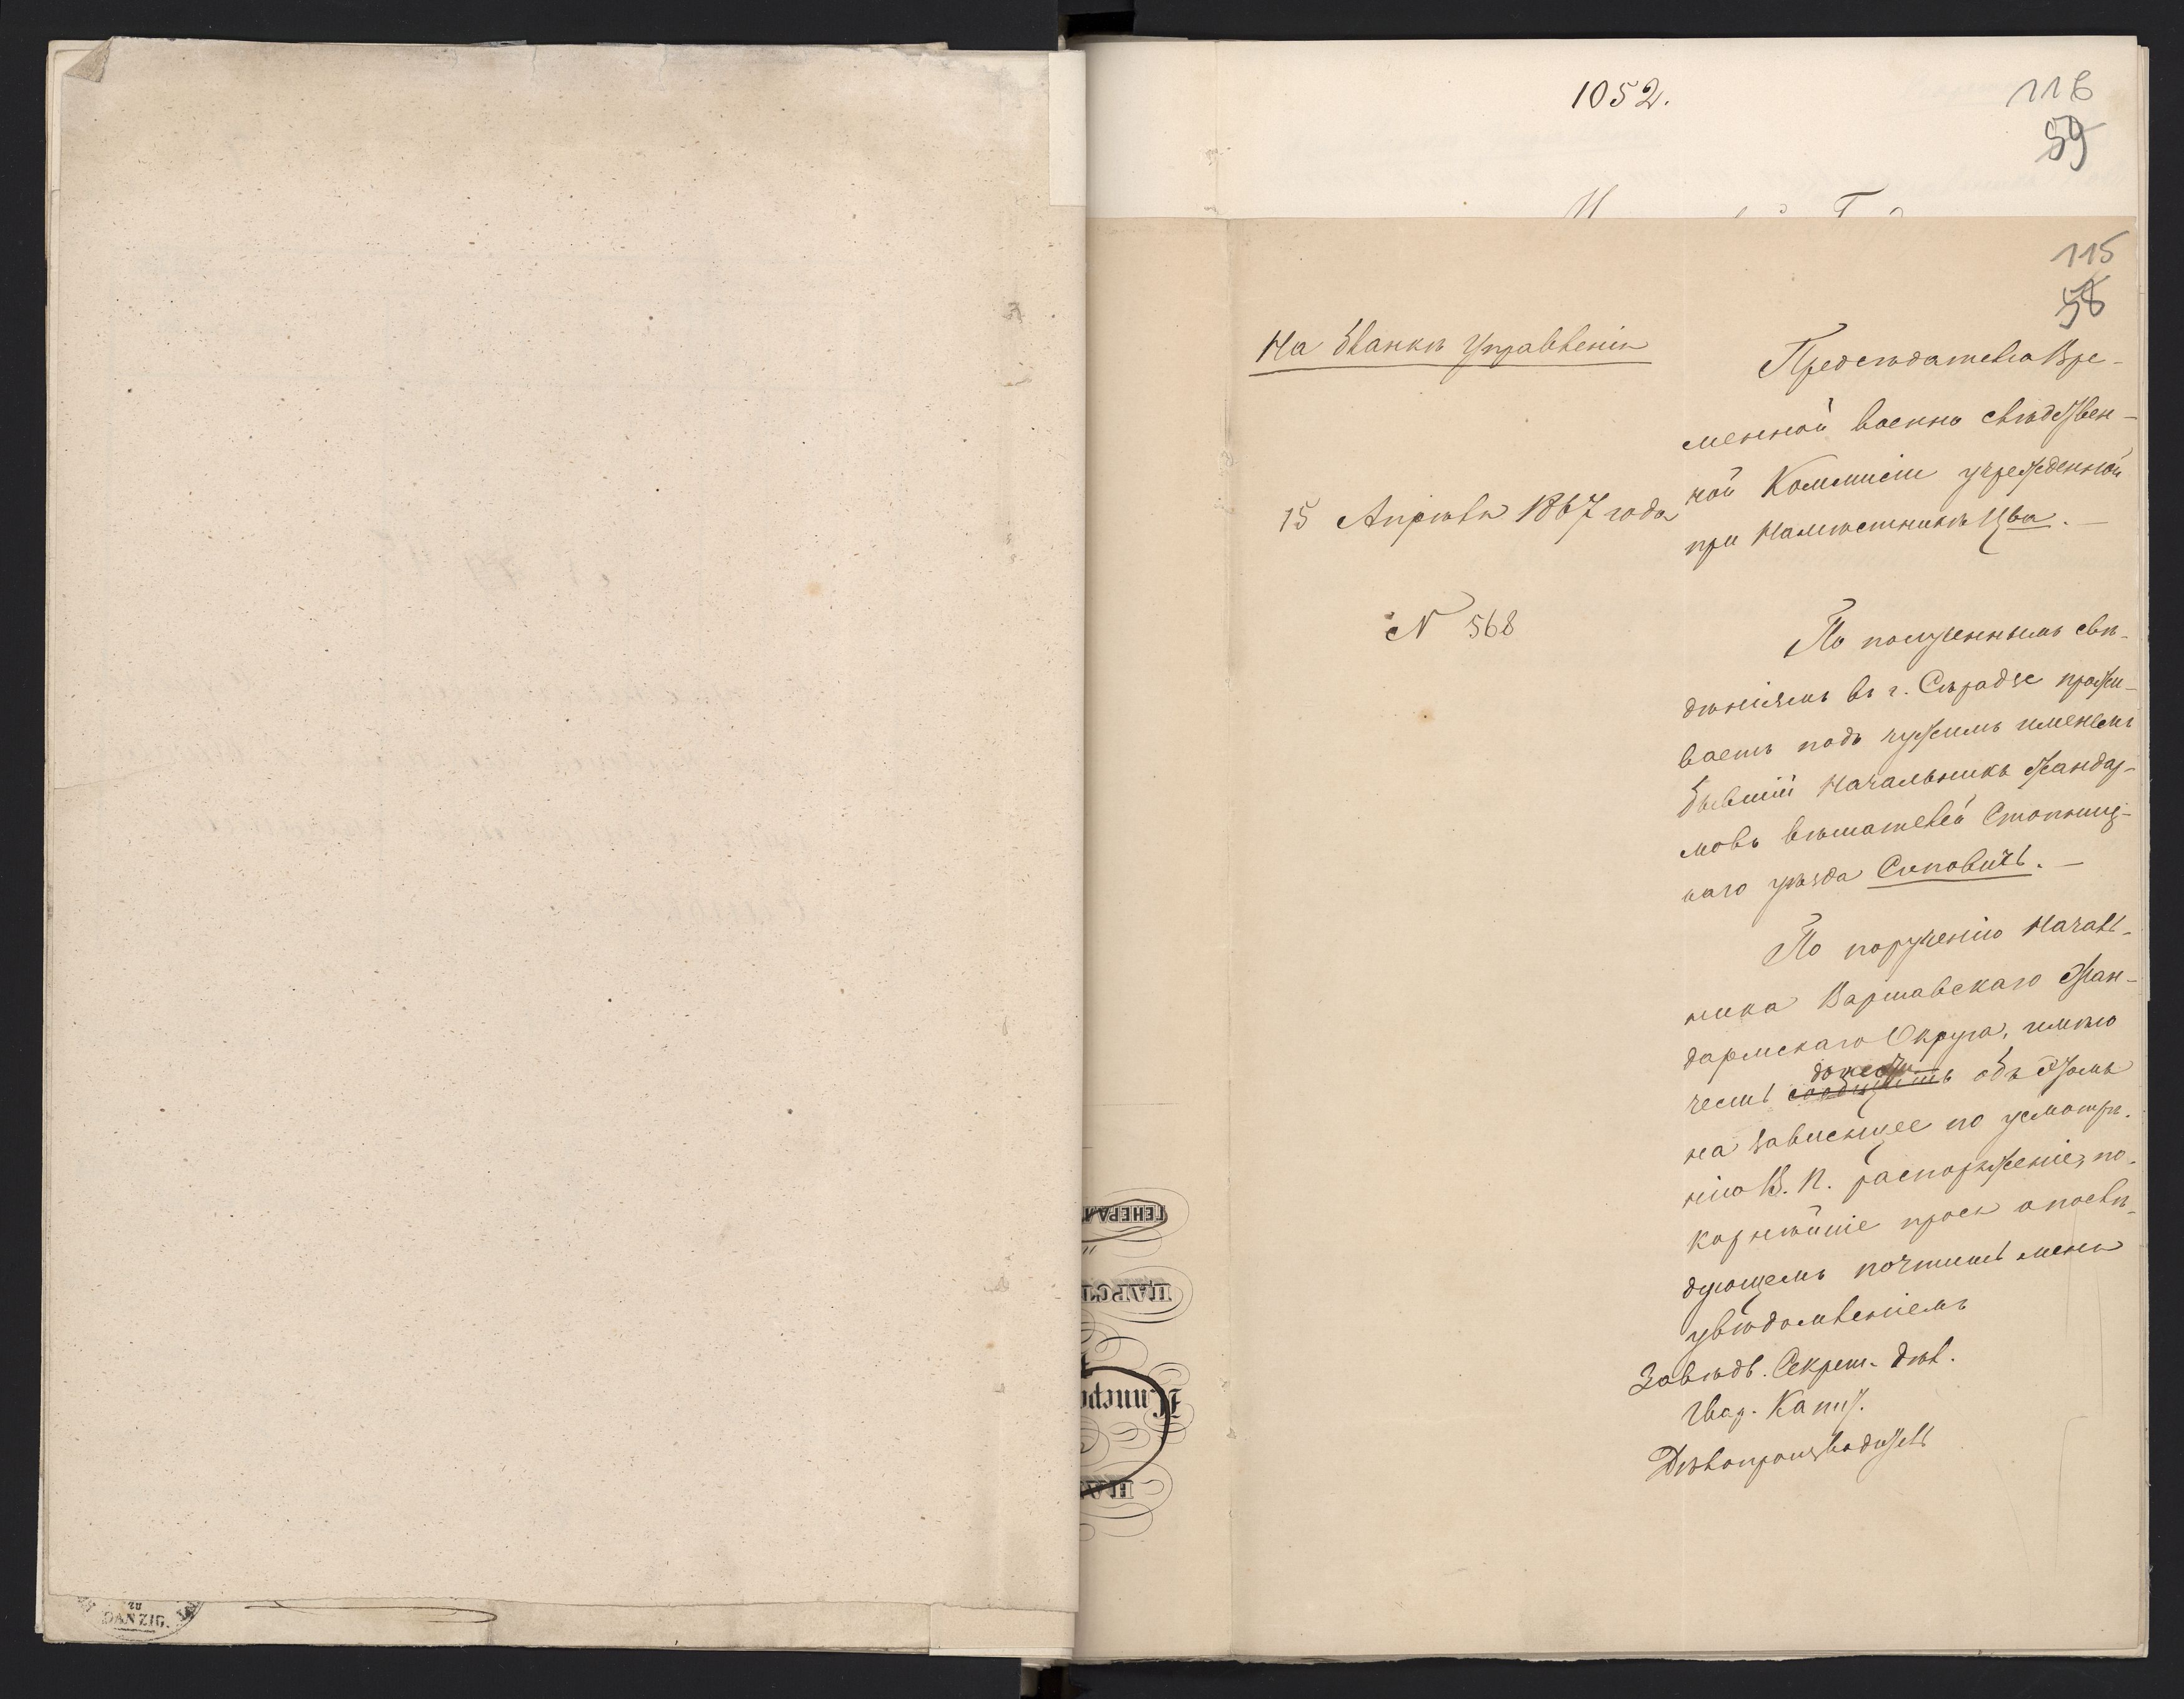 1052.
116
59
115
58
На бланкѣ Управленія
Предсѣдателю Вре-
менной военно слѣдствен-
ной Коммисіи учрежденной
при Намѣстникѣ Цва. —
15 Апрѣля 1867 года
N 568
По полученнымъ свѣ-
дѣніямъ въ г. Сѣрадзе прожи-
ваетъ подъ чужимъ именемъ
бывшій Начальникъ жандар-
мовъ вѣшателей Стопниц-
каго уѣзда Сиповичъ. —
По порученію Началь-
ника Варшавскаго Жан-
дармскаго Округа, имѣю
донести
честь сообщить объ этомъ
на зависящее по усмотрѣ-
нію В. П. распоряженіе, по-
корнѣйше прося о послѣ-
дующемъ почтить меня
увѣдомленіемъ
Завѣдѣ. Секрет. дѣл.
Гвар. Капит.
Дѣлопроизводитель
ZU
DANZIG.